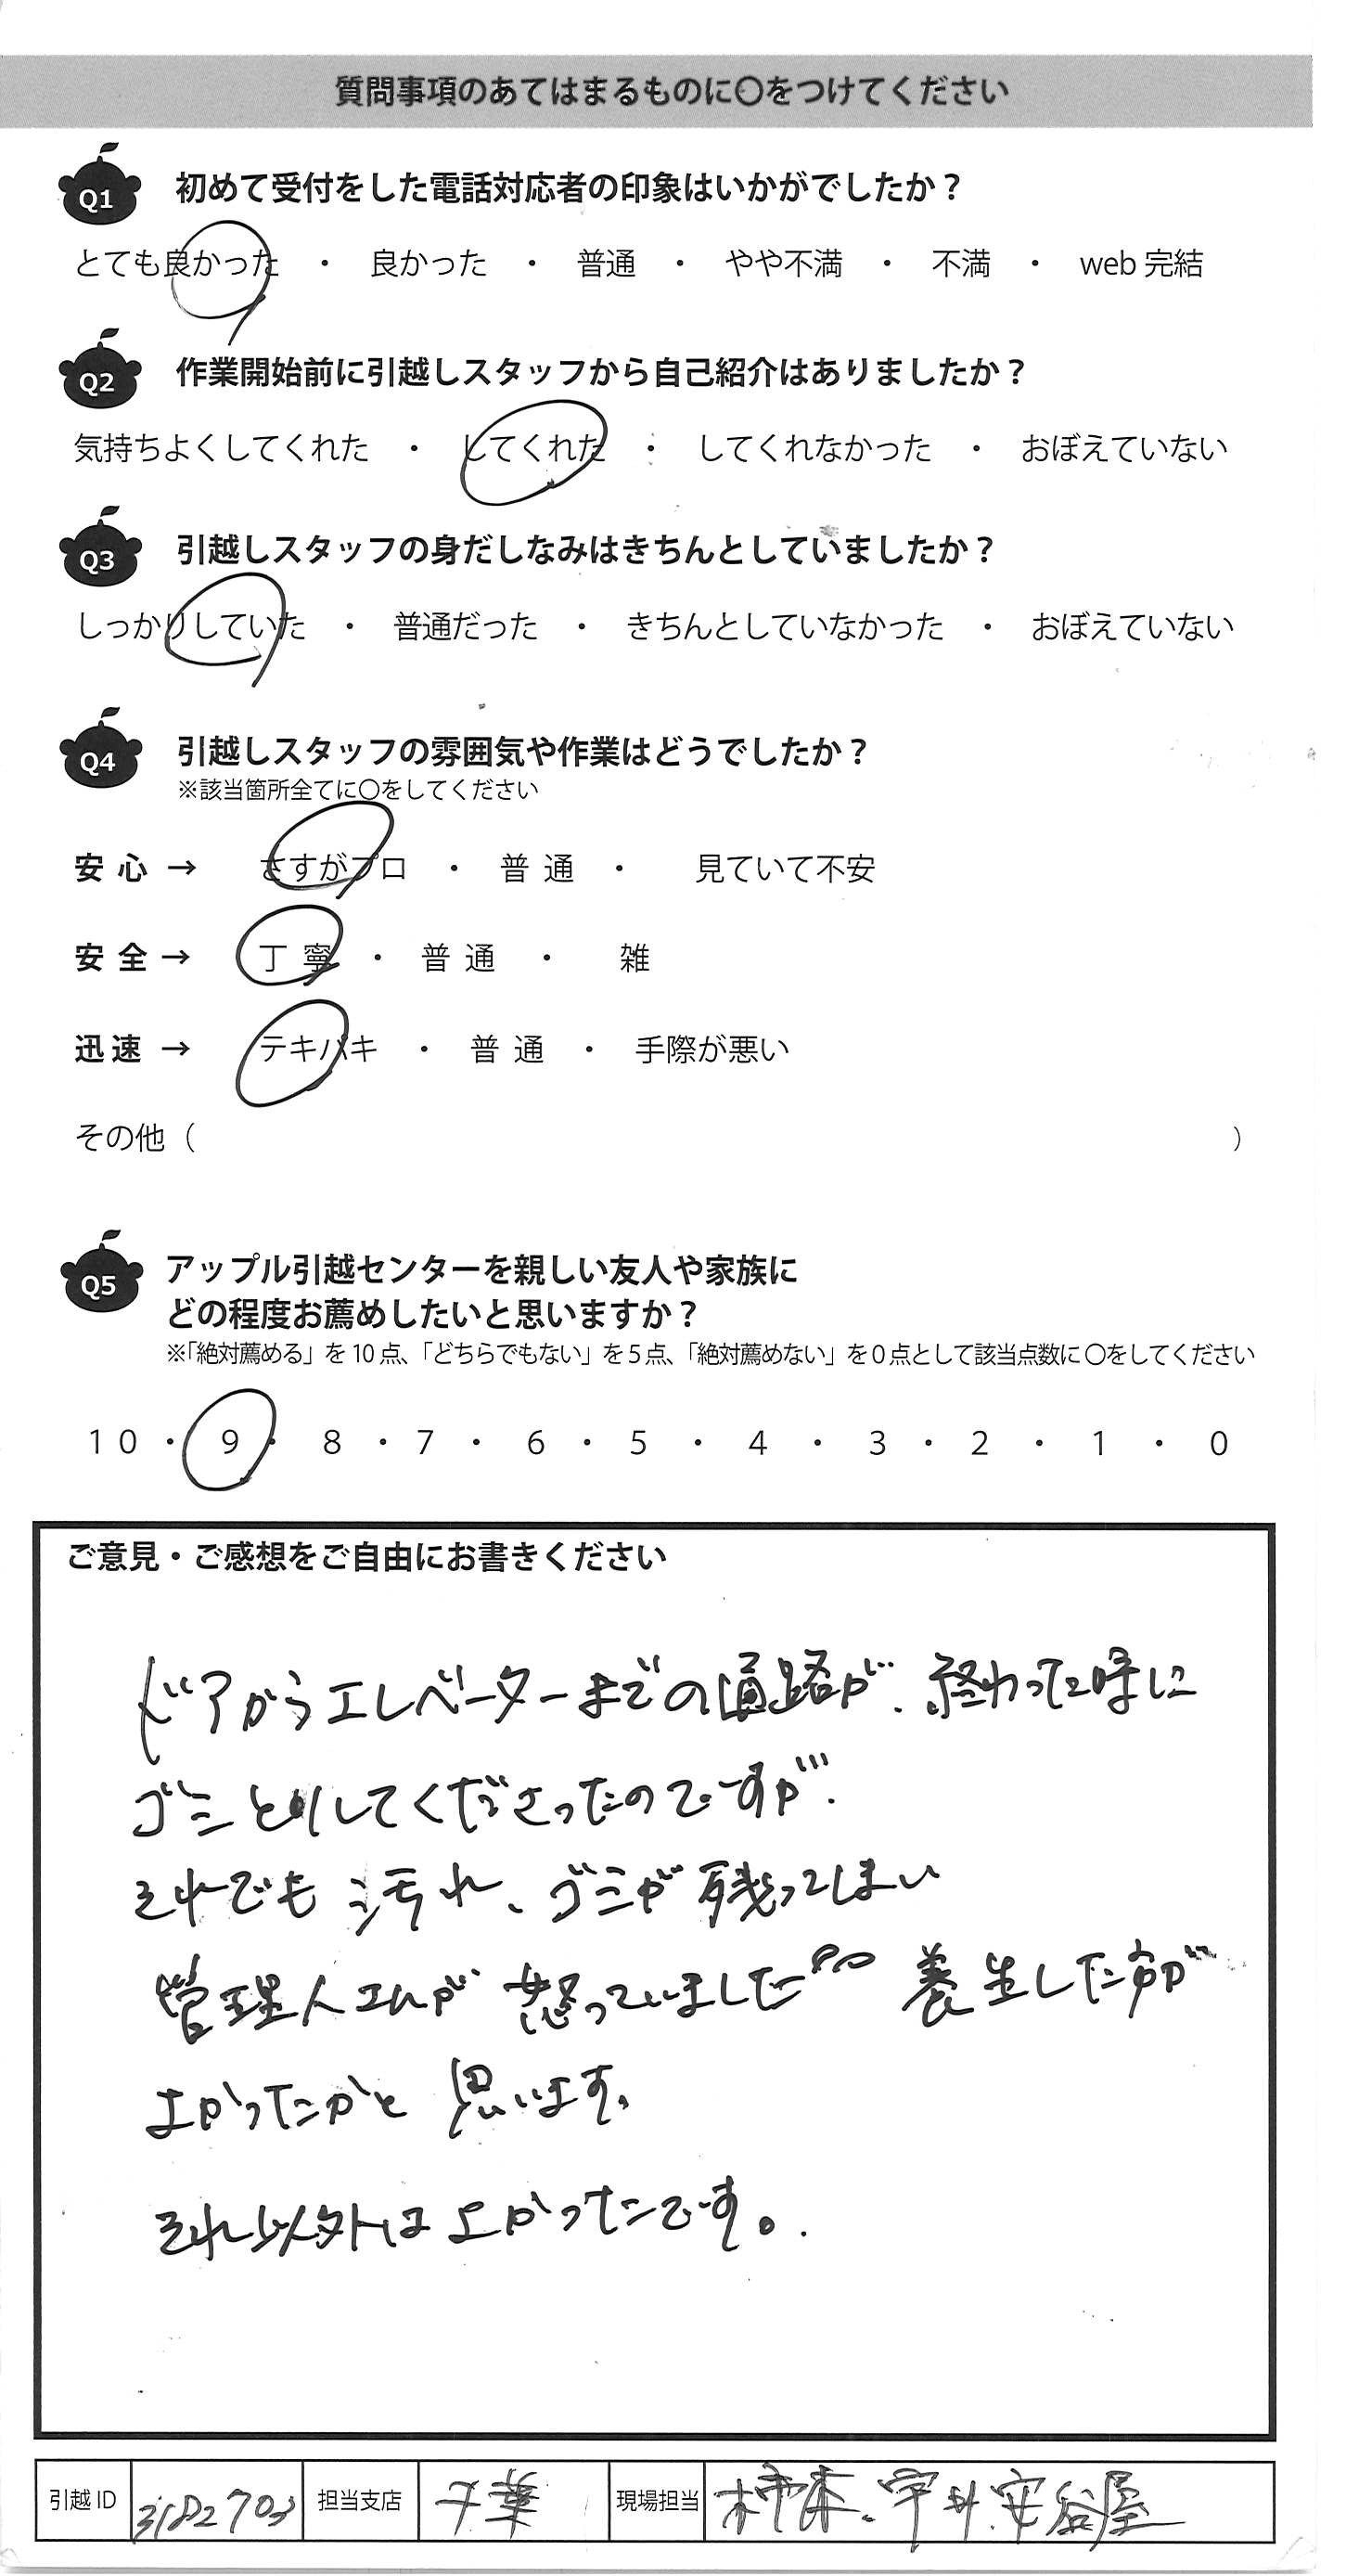 質問事項のあてはまるものに〇をつけてください
Q1 初めて受付をした電話対応者の印象はいかがでしたか？
とても良かった ・ 良かった ・ 普通 ・ やや不満 ・ 不満 ・ web 完結
Q2 作業開始前に引越しスタッフから自己紹介はありましたか？
気持ちよくしてくれた ・ してくれた ・ してくれなかった ・ おぼえていない
Q3 引越しスタッフの身だしなみはきちんとしていましたか？
しっかりしていた ・ 普通だった ・ きちんとしていなかった ・ おぼえていない
Q4 引越しスタッフの雰囲気や作業はどうでしたか？
※該当箇所全てに〇をしてください
安心 → さすがプロ ・ 普通 ・ 見ていて不安
安全 → 丁寧 ・ 普通 ・ 雑
迅速 → テキパキ ・ 普通 ・ 手際が悪い
その他（ ）
Q5 アップル引越センターを親しい友人や家族に
どの程度お薦めしたいと思いますか？
※「絶対薦める」を10点、「どちらでもない」を5点、「絶対薦めない」を0点として該当点数に〇をしてください
10 ・ 9 ・ 8 ・ 7 ・ 6 ・ 5 ・ 4 ・ 3 ・ 2 ・ 1 ・ 0
ご意見・ご感想をご自由にお書きください
ドアからエレベーターまでの通路が、終わった時に
ゴミとりしてくださったのですが、
それでも汚れ、ゴミが残ってしまい
管理人さんが怒っていました 養生した方が
よかったかと思います。
それ以外はよかったです。
引越ID 3182703 担当支店 千葉 現場担当 柿本、宇井、安谷屋